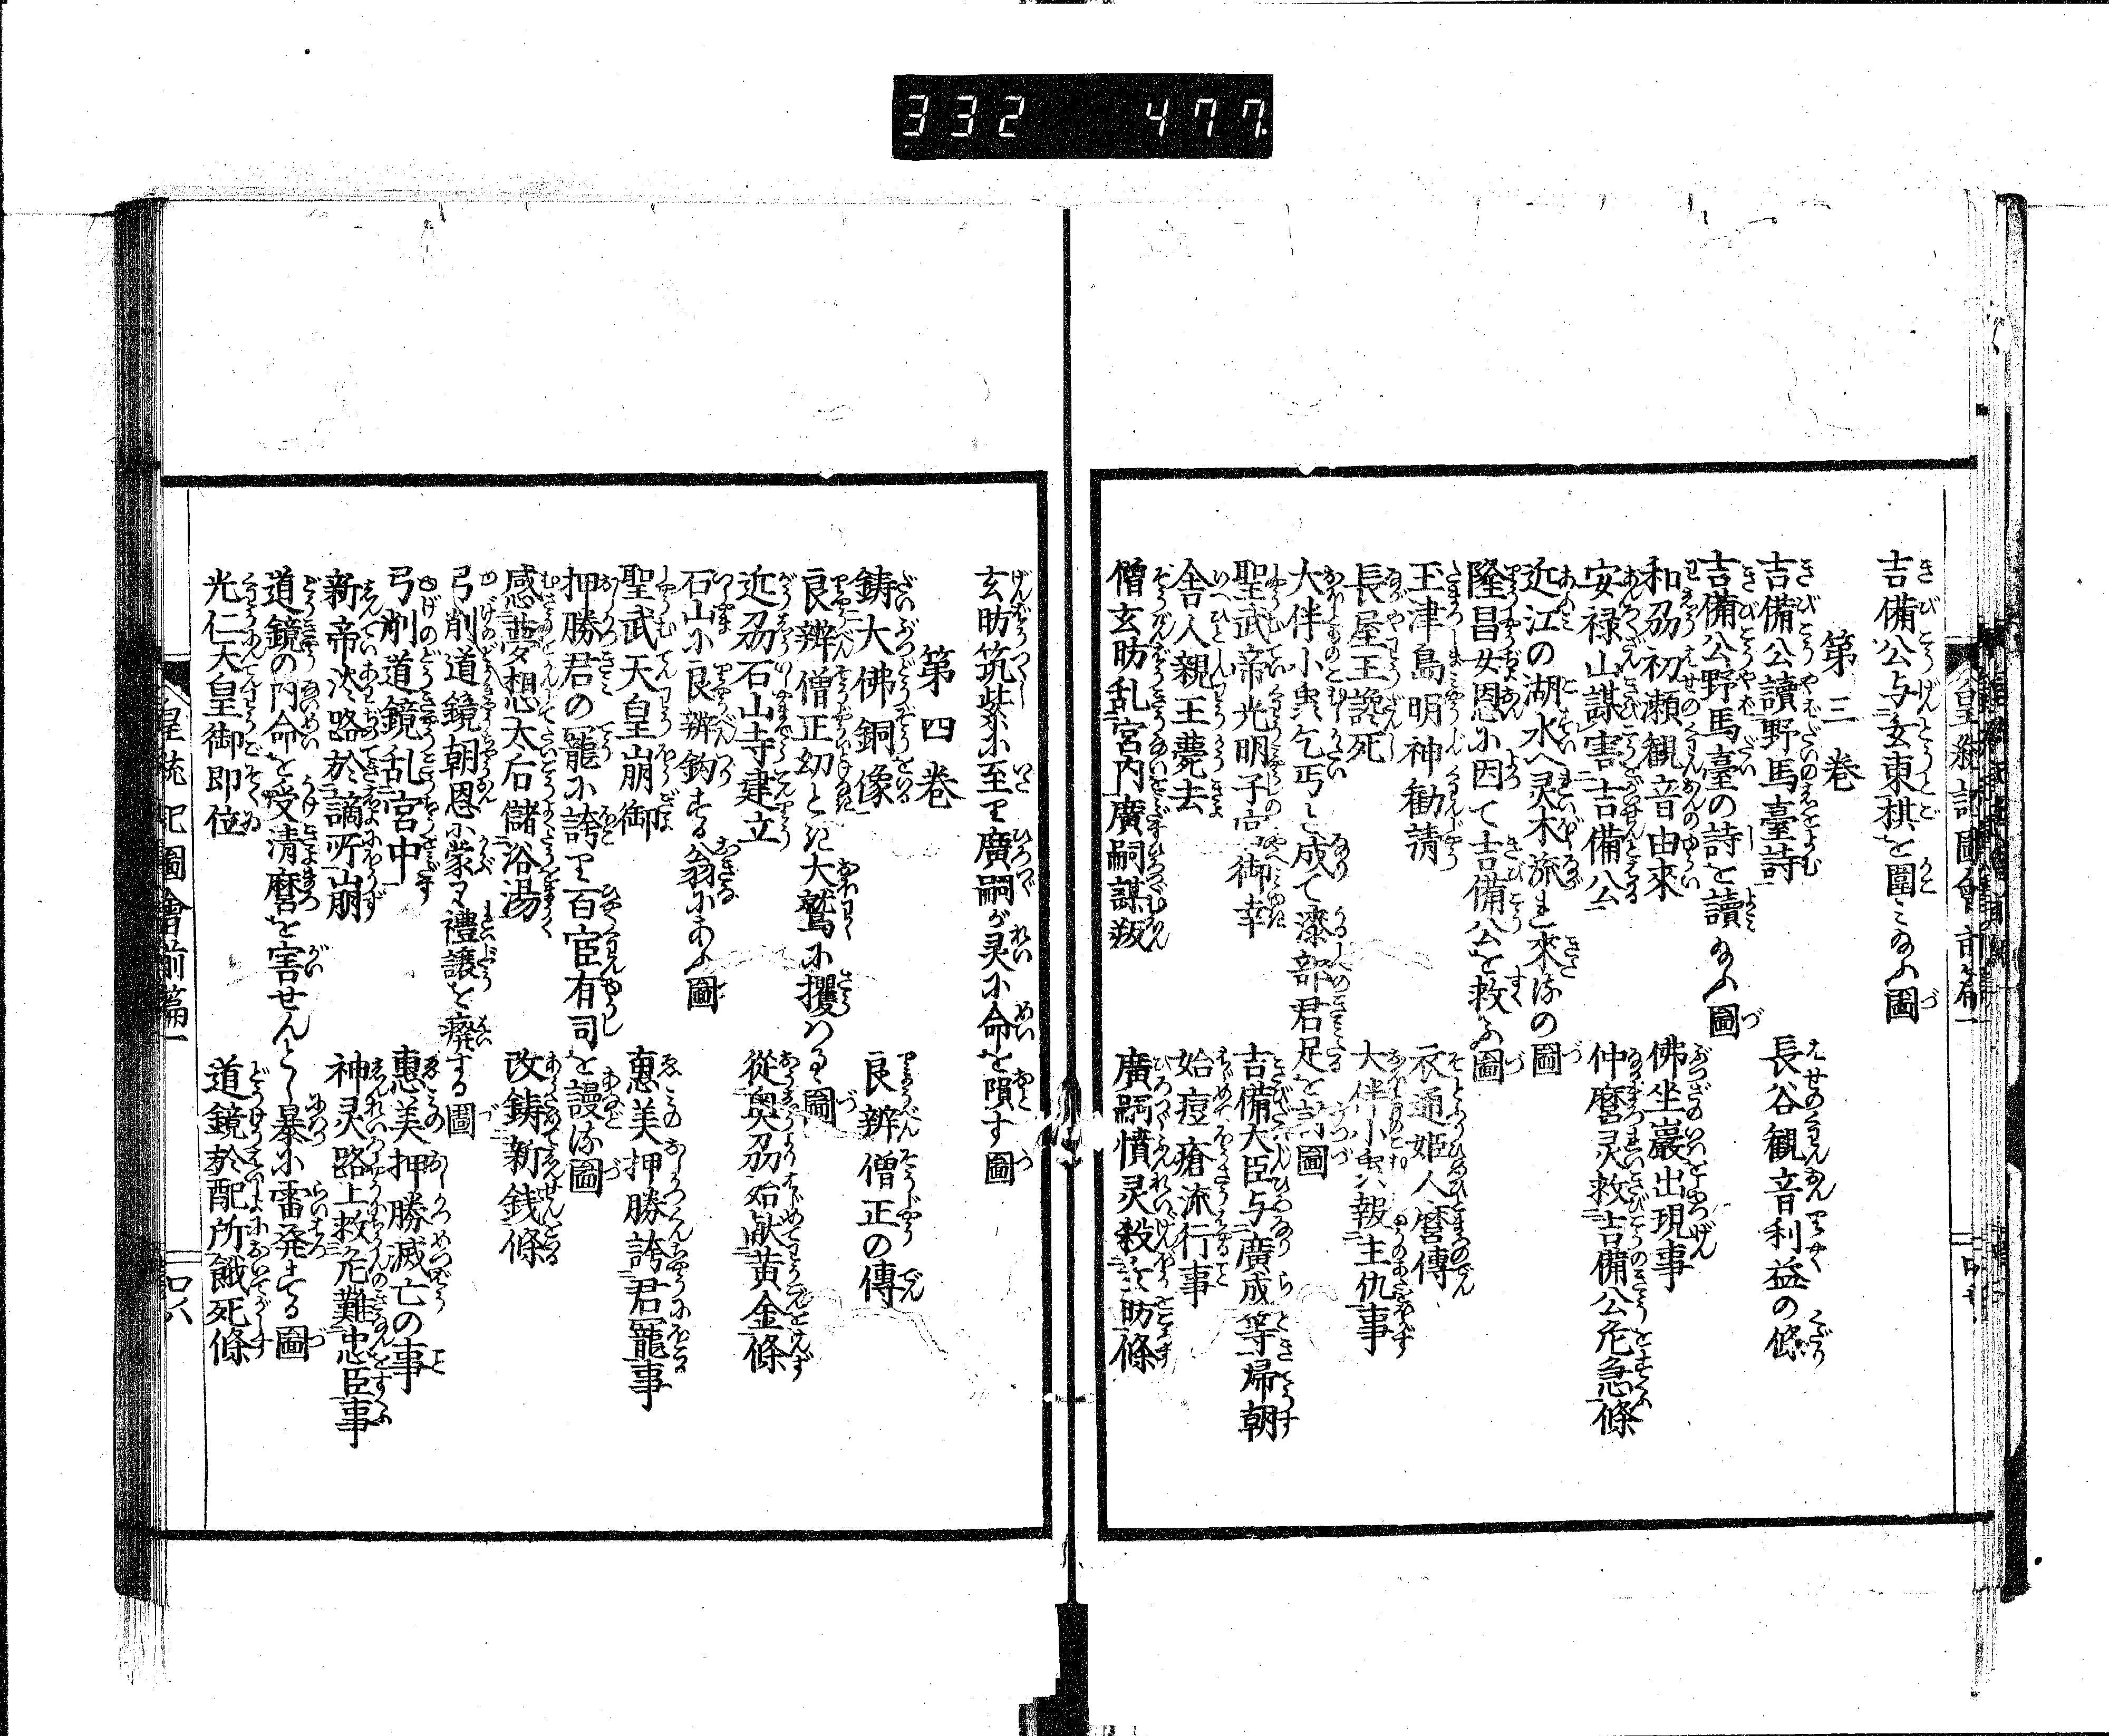 332 477
吉備公与玄東棋を圍み給ふ圖
第三巻
吉備公讀野馬臺詩
長谷観音利益の條
吉備公野馬臺の詩を讀給ふ圖
和刕初瀬観音由來
佛坐巖出現事
安禄山謀害吉備公
仲麿灵救吉備公危急條
近江の湖水へ灵木流れ來るの圖
隆昌女恩に因て吉備公を救ふ圖
玉津島明神勧請
衣通姫人麿傳
長屋王讒死
大伴小虫報主仇事
大伴小虫乞丐と成て漆部君足を討圖
聖武帝光明子宮御幸
吉備大臣与廣成等帰朝
舎人親王薨去
始痘瘡流行事
僧玄昉乱宮内廣嗣謀叛
廣嗣憤灵殺玄昉條
玄昉筑紫に至り廣嗣が灵に命を隕す圖
第四巻
鋳大佛銅像
良辨僧正の傳
良辨僧正幼とき大鷲に攫はるゝ圖
近刕石山寺建立
從奥刕始献黄金條
石山に良辨釣する翁にあふ圖
聖武天皇崩御
惠美押勝誇君寵事
押勝君の寵に誇り百官有司を謾る圖
感夢想大后儲浴湯
改鋳新銭條
弓削道鏡朝恩に蒙り禮譲を癈する圖
弓削道鏡乱宮中
惠美押勝滅亡の事
新帝淡路於謫所崩
神灵路上救危難忠臣事
道鏡の内命を受清麿を害せんとし暴に雷発する圖
光仁天皇御即位
道鏡於配所餓死條
皇統記圖會前篇一
口六